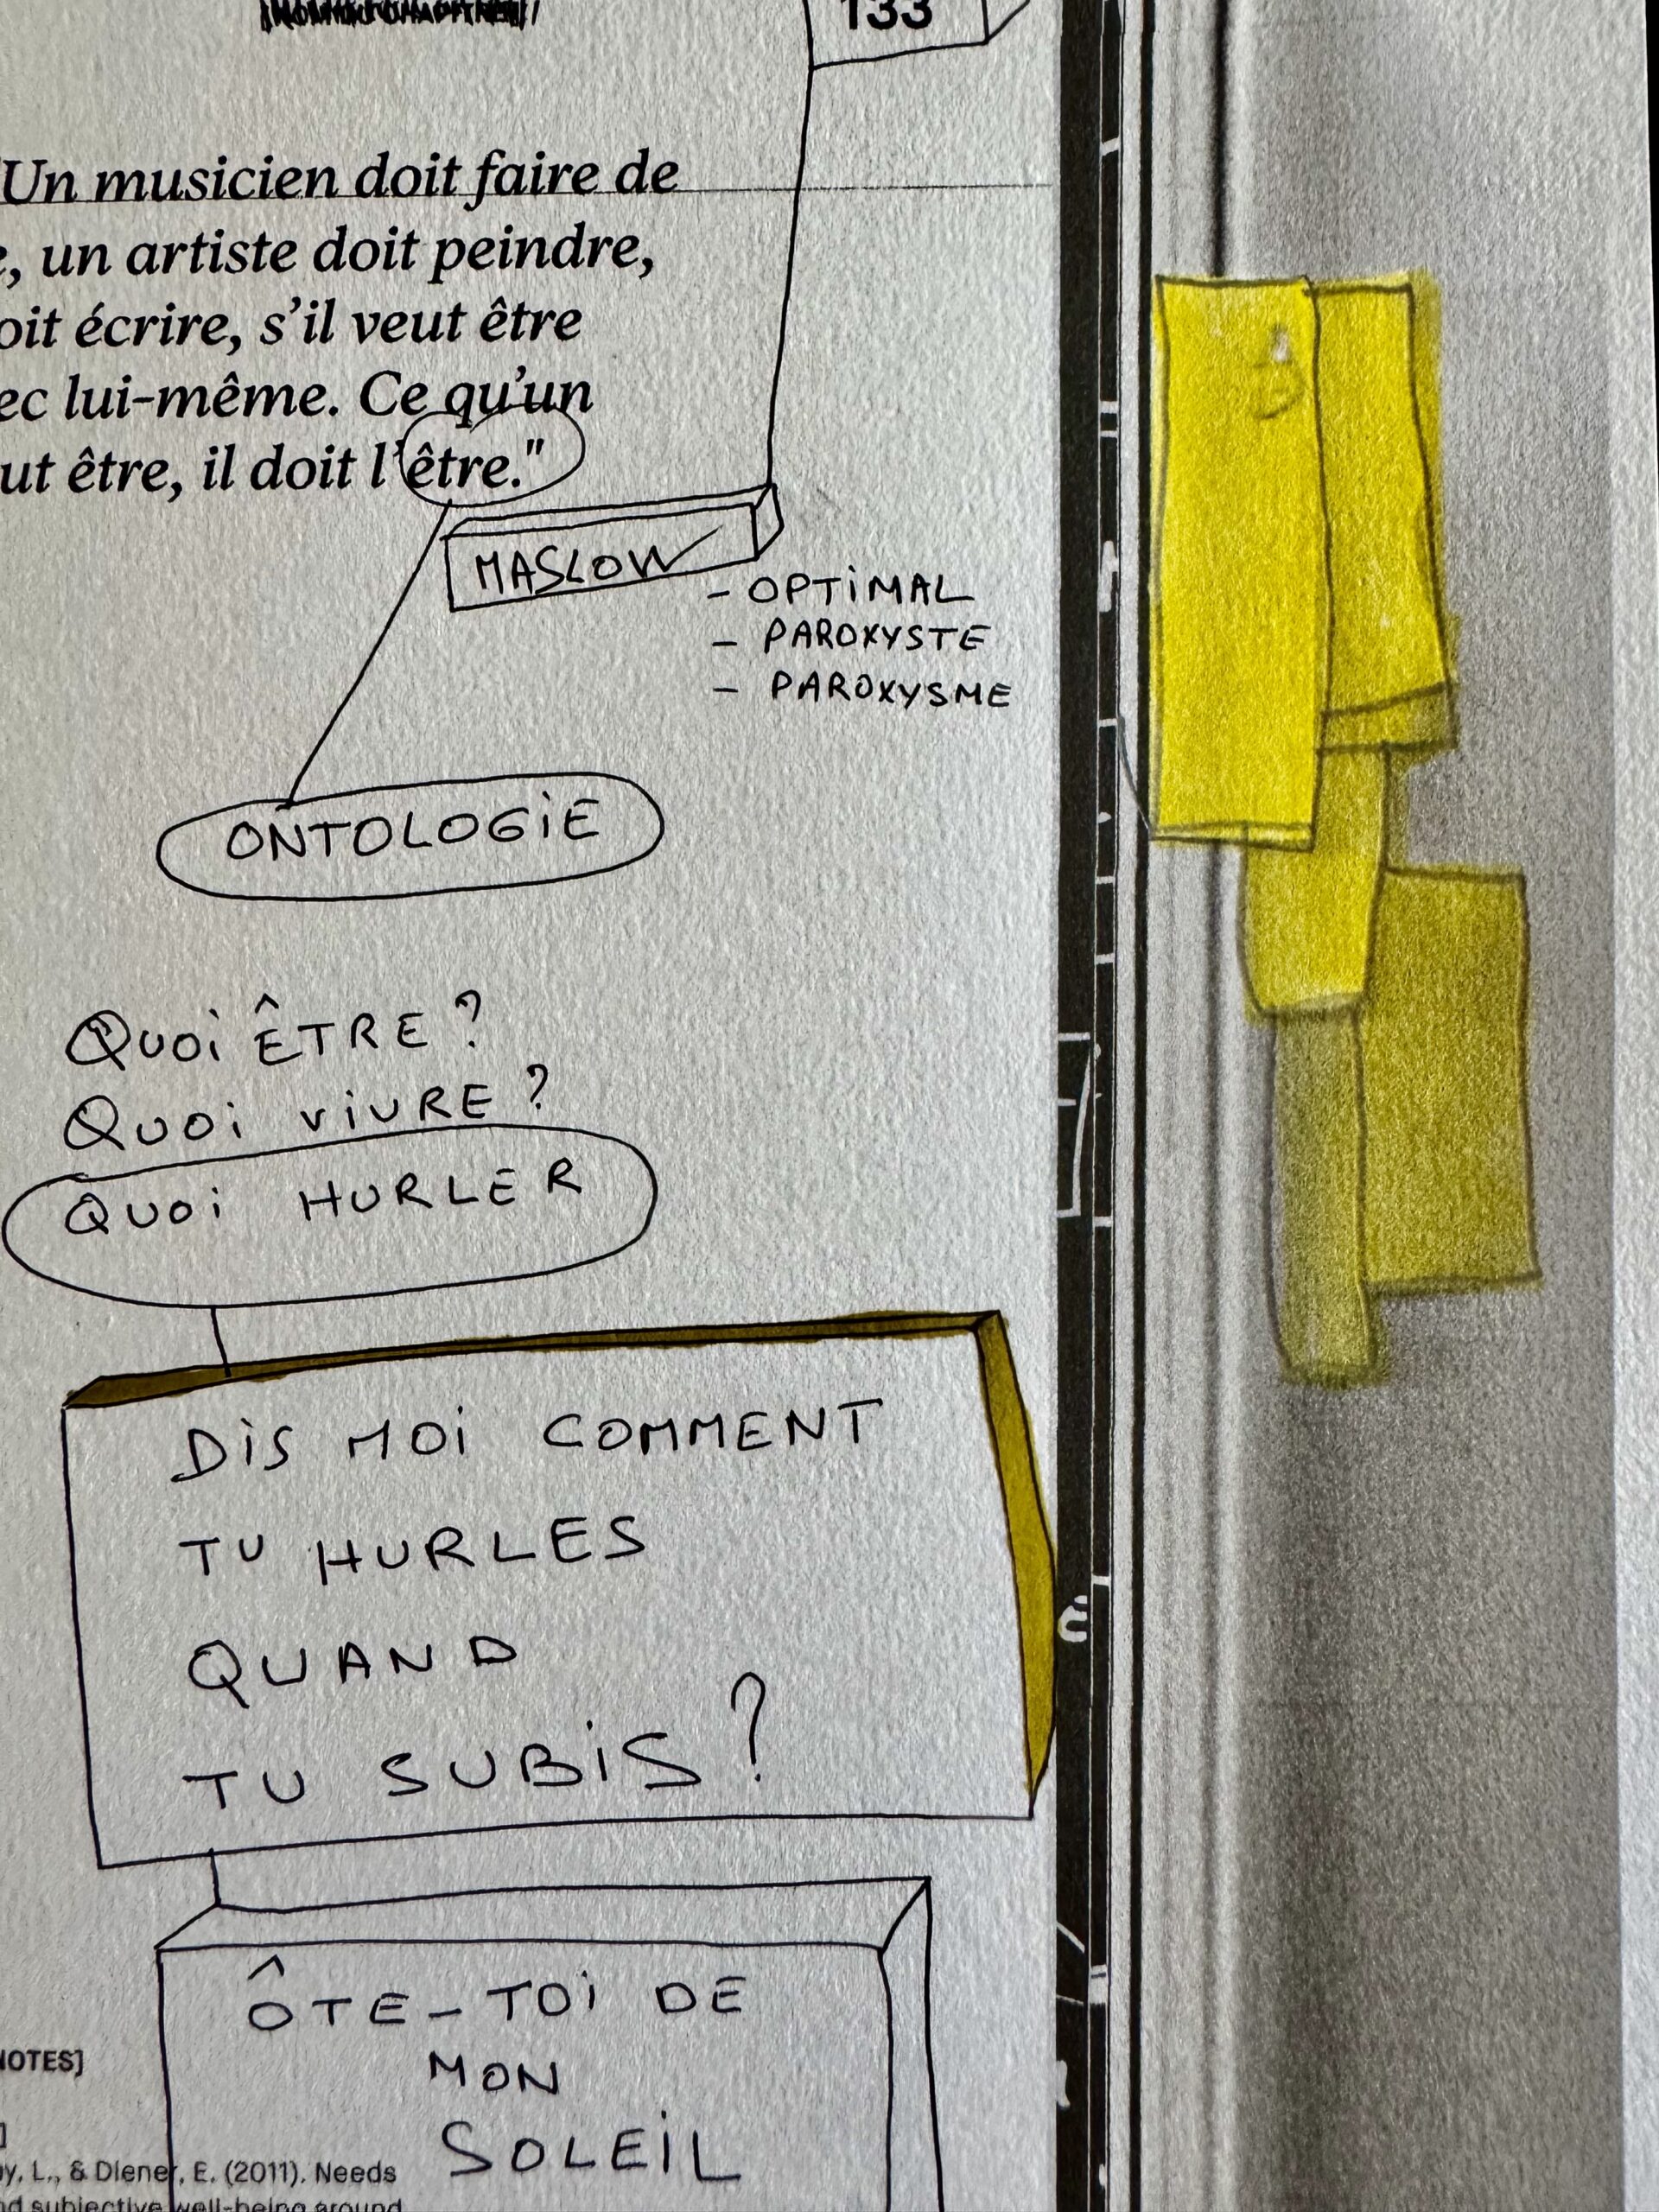 133
"Un musicien doit faire de
, un artiste doit peindre,
oit écrire, s'il veut être
ec lui-même. Ce qu'un
ut être, il doit l'être."
MASLOW
- OPTIMAL
- PAROXYSTE
- PAROXYSME
ONTOLOGIE
QUOI ÊTRE ?
QUOI VIVRE ?
QUOI HURLER
DIS MOI COMMENT
TU HURLES
QUAND
TU SUBIS ?
ÔTE-TOI DE
MON
SOLEIL
NOTES]
]
y, L., & Diener, E. (2011). Needs
nd subjective well-being around